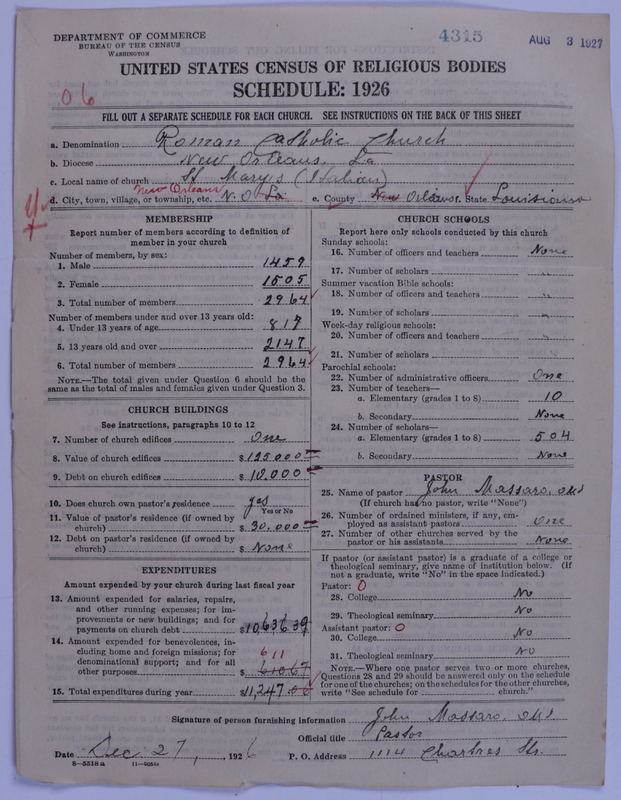 DEPARTMENT OF COMMERCE
BUREAU OF THE CENSUS
WASHINGTON
4315
AUG 3 1927
UNITED STATES CENSUS OF RELIGIOUS BODIES
SCHEDULE: 1926
06
FILL OUT A SEPARATE SCHEDULE FOR EACH CHURCH. SEE INSTRUCTIONS ON THE BACK OF THIS SHEET
a. Denomination Roman Catholic Church
b. Diocese New Orleans, La
c. Local name of church St Mary's (Italian)
New Orleans
d. City, town, village, or township, etc. N.O. La e. County New Orleans f. State Louisiana
MEMBERSHIP
Report number of members according to definition of member in your church
Number of members, by sex:
1. Male 1459
2. Female 1505
3. Total number of members 2964
Number of members under and over 13 years old:
4. Under 13 years of age 817
5. 13 years old and over 2147
6. Total number of members 2964
NOTE.—The total given under Question 6 should be the same as the total of males and females given under Question 3.
CHURCH BUILDINGS
See instructions, paragraphs 10 to 12
7. Number of church edifices One
8. Value of church edifices $125.000
9. Debt on church edifices $10.000
10. Does church own pastor's residence yes
Yes or No
11. Value of pastor's residence (if owned by church) $30.000
12. Debt on pastor's residence (if owned by church) $ None
EXPENDITURES
Amount expended by your church during last fiscal year
13. Amount expended for salaries, repairs, and other running expenses; for improvements or new buildings; and for payments on church debt $10,636 39
14. Amount expended for benevolences, including home and foreign missions; for denominational support; and for all other purposes $ 610.67
611
15. Total expenditures during year $11,247.06
CHURCH SCHOOLS
Report here only schools conducted by this church
Sunday schools:
16. Number of officers and teachers None
17. Number of scholars "
Summer vacation Bible schools:
18. Number of officers and teachers "
19. Number of scholars "
Week-day religious schools:
20. Number of officers and teachers "
21. Number of scholars "
Parochial schools:
22. Number of administrative officers One
23. Number of teachers—
a. Elementary (grades 1 to 8) 10
b. Secondary None
24. Number of scholars—
a. Elementary (grades 1 to 8) 504
b. Secondary None
PASTOR
25. Name of pastor John Massaro, OMI
(If church has no pastor, write "None")
26. Number of ordained ministers, if any, employed as assistant pastors One
27. Number of other churches served by the pastor or his assistants None
If pastor (or assistant pastor) is a graduate of a college or theological seminary, give name of institution below. (If not a graduate, write "No" in the space indicated.)
Pastor: 0
28. College No
29. Theological seminary No
Assistant pastor: 0
30. College No
31. Theological seminary NO
NOTE.—Where one pastor serves two or more churches, Questions 28 and 29 should be answered only on the schedule for one of the churches; on the schedules for the other churches, write "See schedule for church."
Signature of person furnishing information John Massaro, OMI
Official title Pastor
Date Dec 27, 1926
P. O. Address 1114 Chartres Str.
8-5518 a